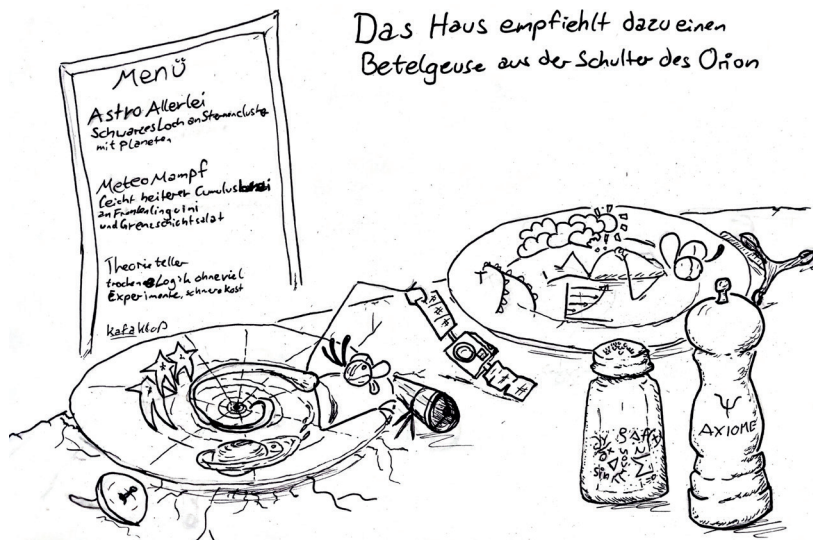 Das Haus empfiehlt dazu einen
Betelgeuse aus der Schulter des Orion
Menü
Astro Allerlei
Schwarzes Loch an Sternencluster
mit Planeten
Meteo Mampf
Leicht heiterer Cumulus
an Frontenlinguini
und Grenzschichtsalat
Theorieteller
trockene Logik ohne viel
Experimente, schwere Kost
kafakloß
Ψ
AXIOME